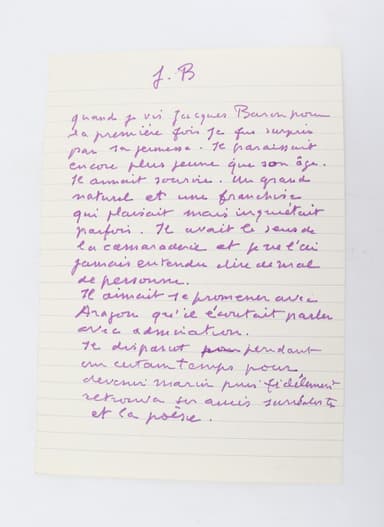 J. B
quand je vis Jacques Baron pour
la première fois je fus surpris
par sa jeunesse. Il paraissait
encore plus jeune que son âge.
Il aimait sourire. Un grand
naturel et une franchise
qui plaisait mais inquiétait
parfois. Il avait le sens de
la camaraderie et je ne l'ai
jamais entendu dire de mal
de personne.
Il aimait se promener avec
Aragon qu'il écoutait parler
avec admiration.
Il disparut pendant
un certain temps pour
devenir marin puis fidèlement
retrouva ses amis surréalistes
et la poésie.